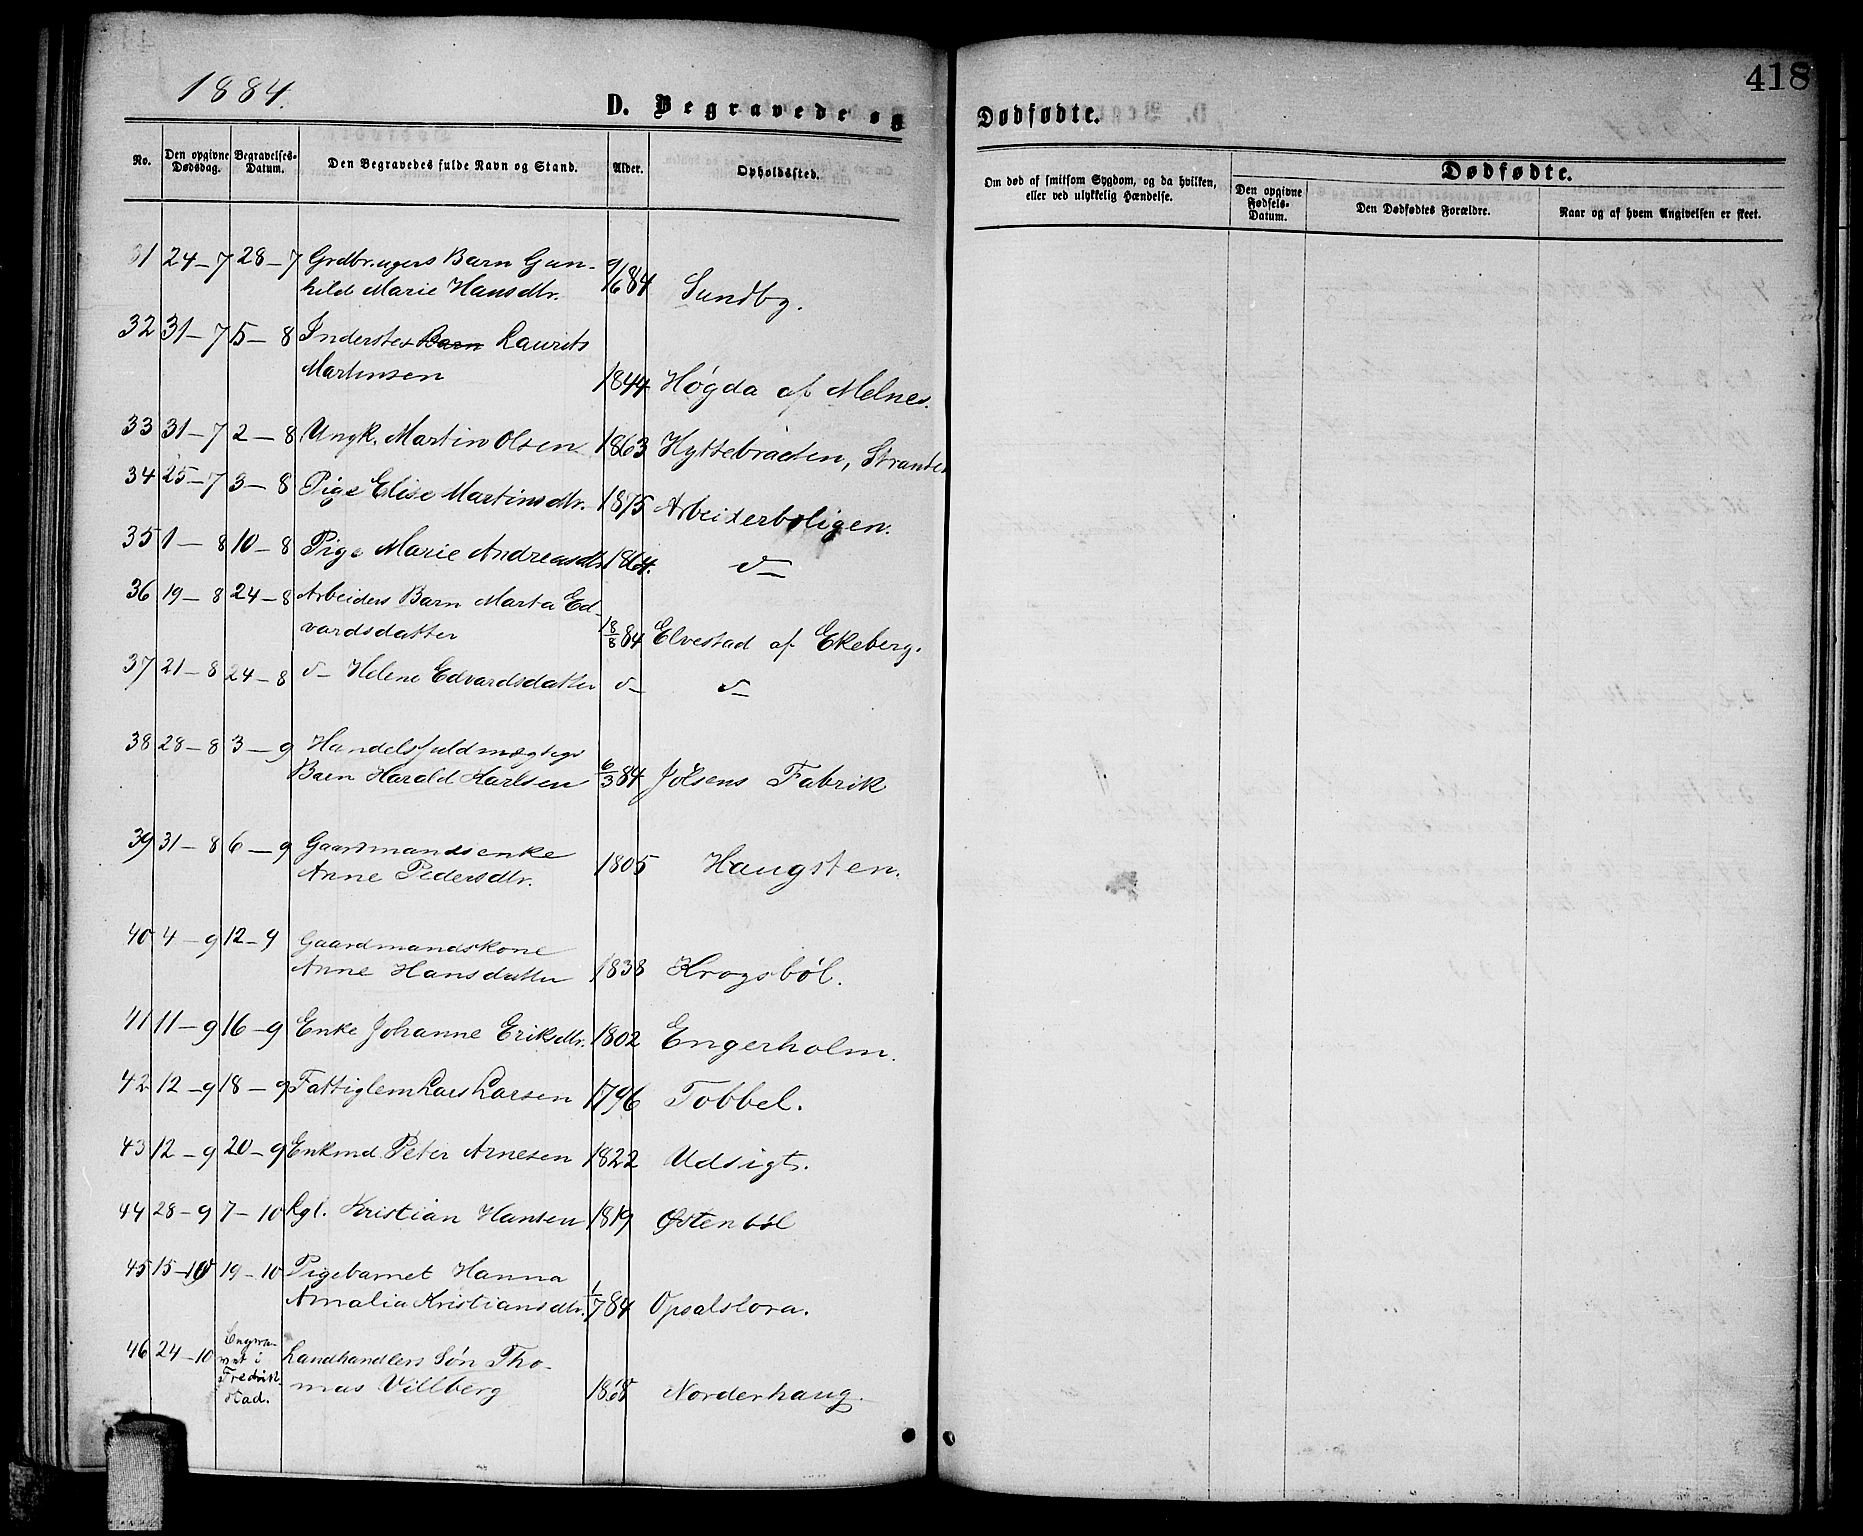 1884.
418
D. Begravede og
Dødfødte.
No.
Den opgivne Dødsdag.
Begravelses-Datum.
Den Begravedes fulde Navn og Stand.
Alder.
Opholdssted.
Om død af smitsom Sygdom, og da hvilken, eller ved ulykkelig Hændelse.
Dødfødte.
Den opgivne Fødsels-Datum.
Den Dødfødtes Forældre.
Naar og af hvem Angivelsen er skeet.
31 24-7 28-7 Grdbrugers Barn Gun-
hild Marie Hansdtr. 9/6 84 Sundby.
32 31-7 5-8 Inderster Barn Laurits
Martinsen 1844 Høgda af Melnes.
33 31-7 2-8 Ungk. Martin Olsen 1863 Hyttebraaten,
34 25-7 3-8 Pige Elise Martinsdtr. 1875 Arbeiderboligen.
35 1-8 10-8 Pige Marie Andreasdtr. 1864. d-
36 19-8 24-8 Arbeiders Barn Marta Ed-
vardsdatter 18/8 84 Elvestad af Ekeberg.
37 21-8 24-8 d- Helene Edvardsdatter d- d-
38 28-8 3-9 Handelsfuldmægtigs
Barn Harald Karlsen 6/3 84 Jølsens Fabrik
39 31-8 6-9 Gaardmandsenke
Anne Pedersdtr. 1805 Haugsten.
40 4-9 12-9 Gaardmandskone
Anne Hansdatter 1838 Krogsbøl.
41 11-9 16-9 Enke Johanne Eriksdtr. 1802 Engerholm.
42 12-9 18-9 Fattiglem Lars Larsen 1796 Tobbel.
43 12-9 20-9 Enkmd. Peter Arnesen 1822 Udsigt.
44 28-9 7-10 Lgl. Kristian Hansen 1819 Østenbøl
45 15-10 19-10 Pigebarnet Hanna
Amalia Kristiansdtr. 1/7 84 Opsalstora.
46 24-10 Begra-
vet i
Fredrik-
stad. Landhandlers Søn Tho-
mas Villberg 1868 Norderhaug.